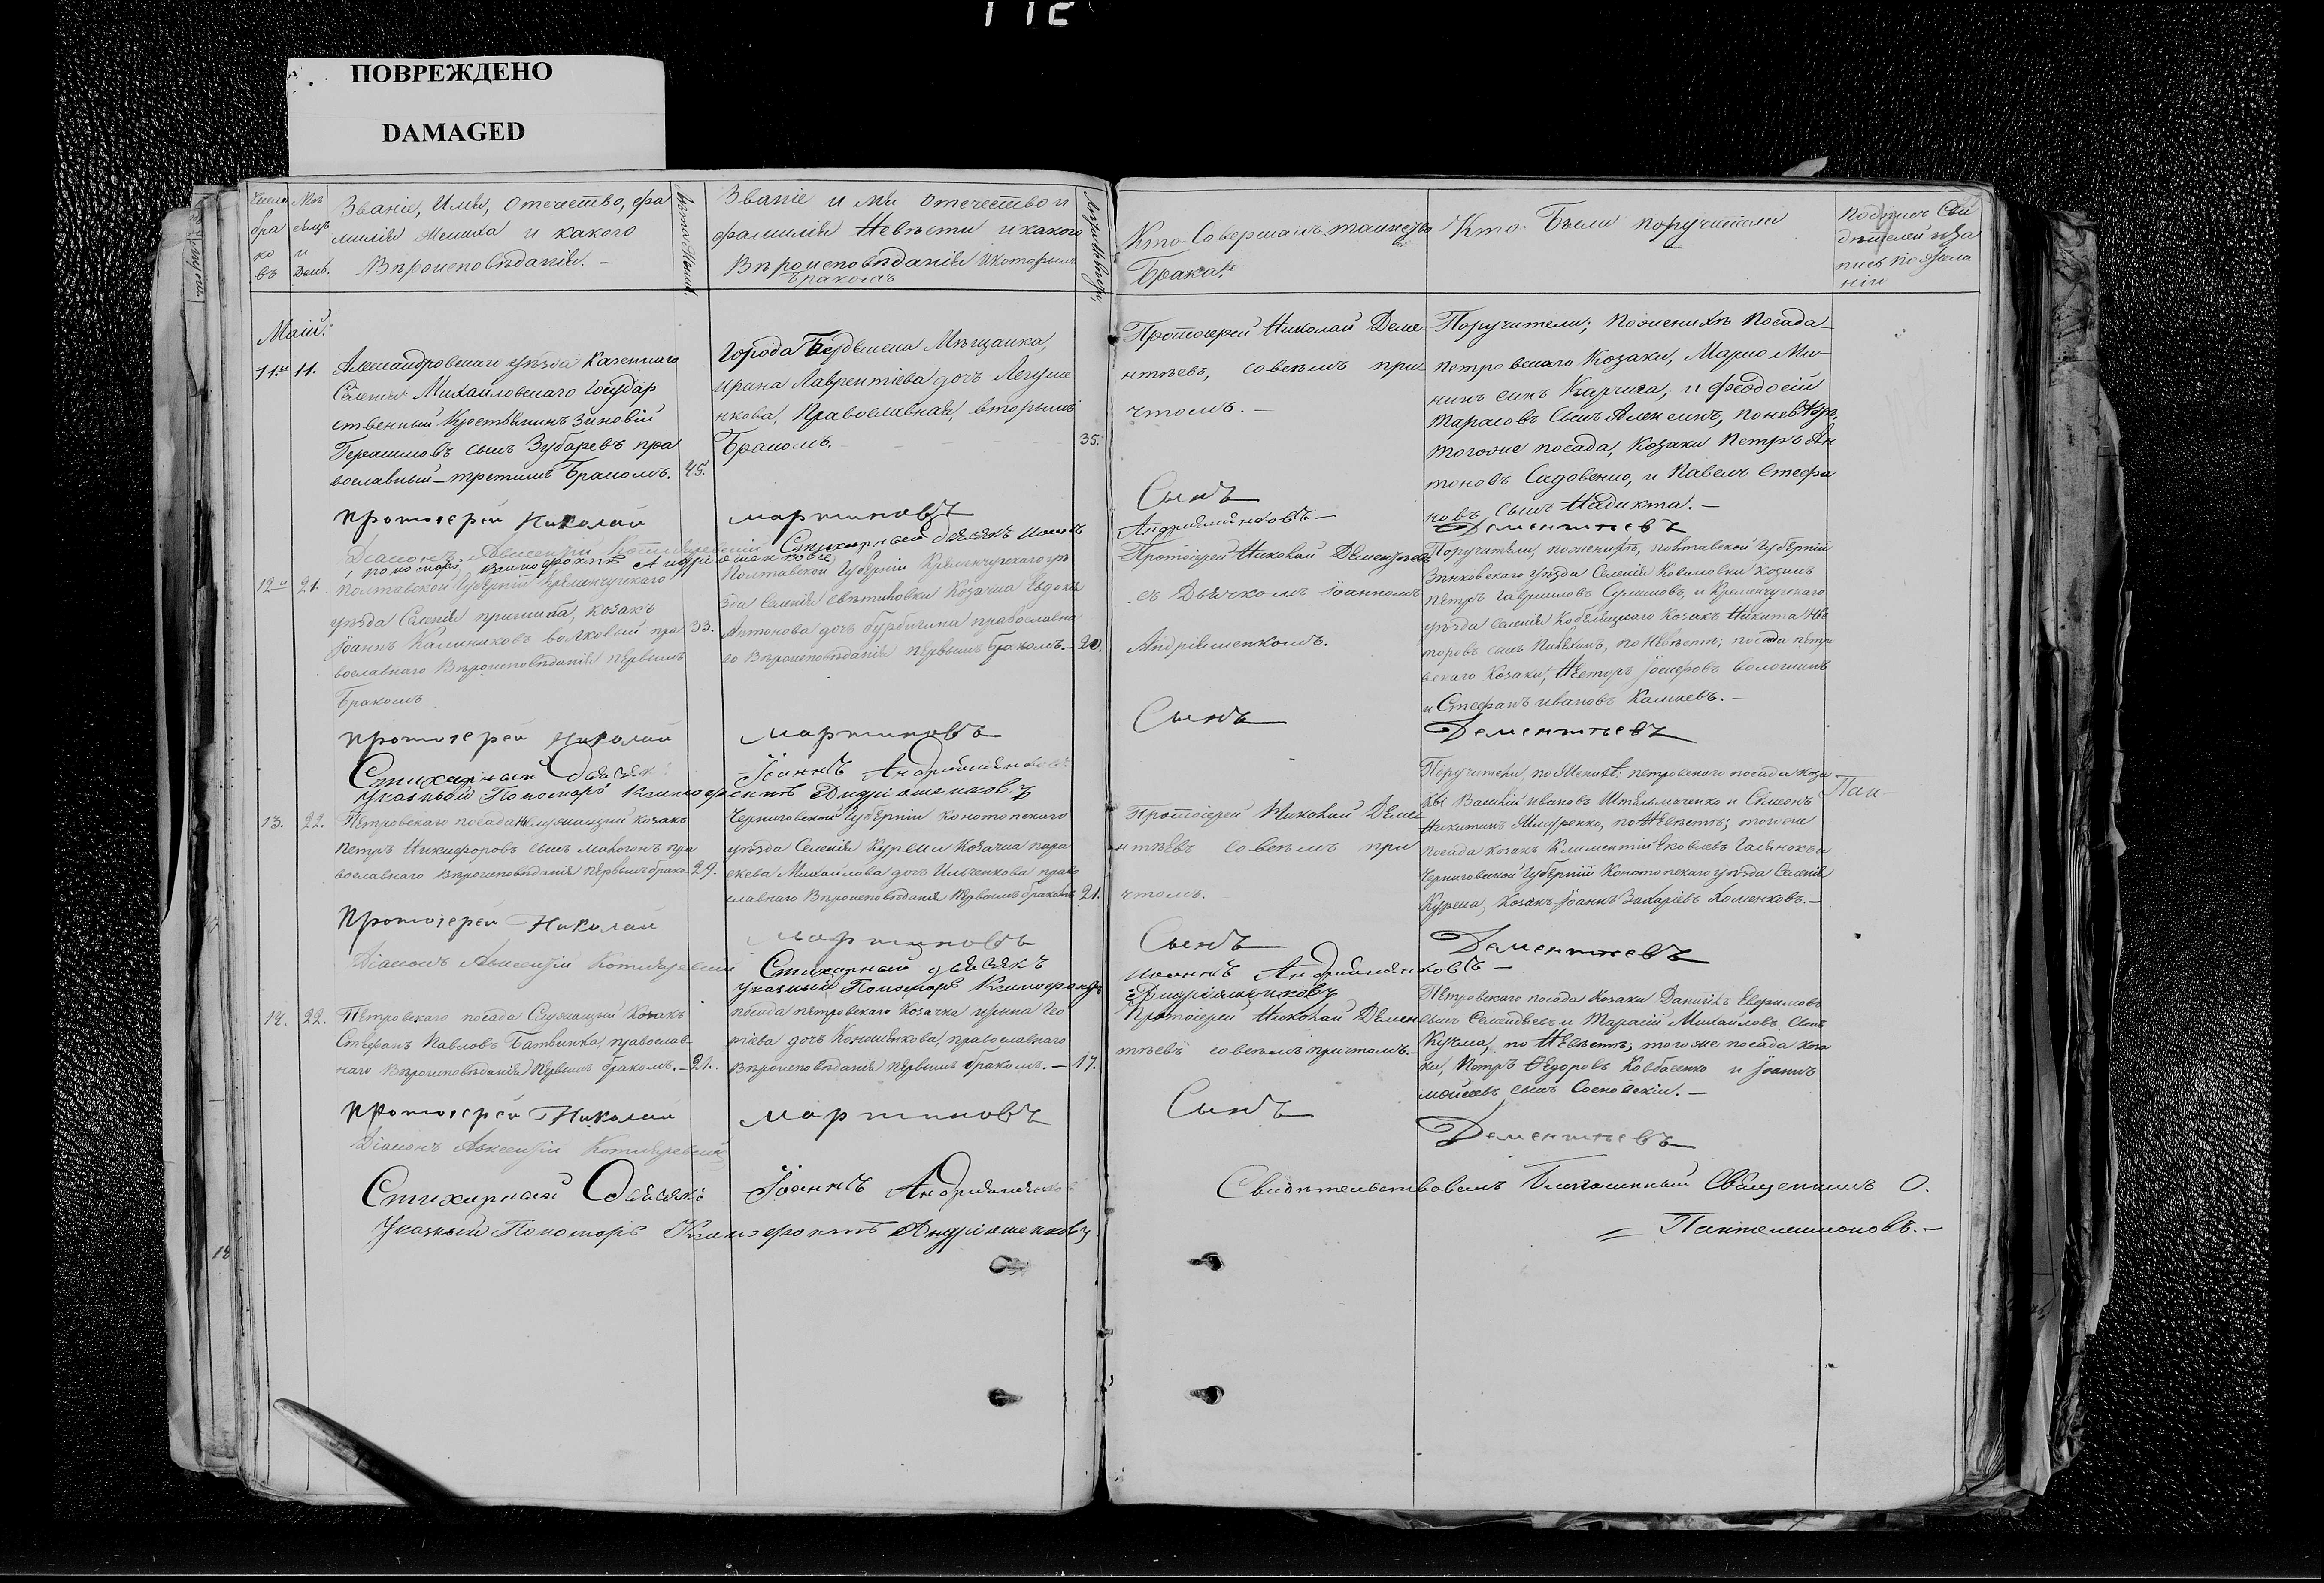 ПОВРЕЖДЕНО
DAMAGED
Число бра ко въ
Мѣ сяцъ и День.
Званіе, Имя, Отечество, фа
милія Жениха и какого
Вѣроисповѣданія. –
Лѣта Жених.
Званіе имя отечество и
фамилія Невѣсти и какого
Вѣроисповѣданія и которым
бракомъ
Лѣта Невѣсты
Кто Совершалъ таинство
Брака.
Кто Были поручители
Подпись Сви
дѣтелей и за
пись по жела
нію
Маій.
11й 11.
Александровскаго уѣзда Казеннаго
Селенія Михайловскаго Государ
ственный Крестьянинъ Зиновій
Герасимовъ сынъ Зубаревъ пра
вославный – третимъ Бракомъ. 45.
Города Бердянска Мѣщанка,
Ирина Лаврентіева дочъ Легуше
нкова, Православная, вторымъ
Бракомъ. 35.
Протоіерей Николай Деме-
нтѣевъ, со всемъ при-
чтомъ. –
Поручители; по женихѣ Посада
петровскаго Козаки, Марко Ми-
нинъ синъ Кирчига, и Феодосій
Тарасовъ Сынъ Алексинъ, по невѣстѣ,
тогоже посада, Козаки Петръ Ан
тоновъ Садовенко, и Павелъ Стефа
новъ сынъ Надикта. –
протоіерей Николай
мартиновъ
Сынъ
Дементтевъ
Діаконъ Авксентій Котляревскій Стихарный дьячекъ Иоаннъ
Андріяшенковъ –
пономарь Ксенофонтъ Андріяшенковъ
12й 21.
Полтавской Губерніи Кременчугскаго
уѣзда Селенія пришиба, козакъ
Іоаннъ Калениковъ волковый пра 33.
вославнаго Вѣроисповѣданія первымъ
Бракомъ
Полтавской Губерніи Кременчугскаго уѣ
зда Селенія свѣтиловки Козачка Евдокія
Антонова дочъ бурбигина православна
го Вѣроисповѣданія первымъ бракомъ. – 20.
Протоіерей Николай Дементѣевъ
съ Дьячкомъ Іоанномъ
Андріяшенкомъ.
Поручители, по женихѣ, полтавской Губерніи
Зѣньковскаго уѣзда Селенія Ковалевки Козакъ
петръ Гавриловъ Сулимовъ, и Кременчугскаго
уѣзда селенія Кобеляцкаго Козакъ Никита Не
по Невѣсте; посада петро
вскаго Козаки, Несторъ Іосифовъ
и Стефанъ Ивановъ Камаевъ. –
протоіерей Николай
мартиновъ
Сынъ
Дементтевъ
Стихарный дьячек
Іоаннъ Андрияшенковъ
Указный Пономарь Ксенофонтъ Андріяшенковъ
13. 22.
Петровскаго посада служащій козакъ
петръ Никифоровъ сынъ Махогонъ пра
вославнаго Вѣроисповѣданія первымъ брако 29.
Черниговской Губерніи Конотопскаго
уѣзда Селенія Куреня Козачка пара
скева Михайлова дочъ Ильченкова право
славнаго Вѣроисповѣданія Первымъ бракомъ 21.
Протоіерей Николай Деме
нтѣевъ со всемъ при
чтомъ.
Поручители, по Женихѣ; петровскаго посада коза
ки Василій Ивановъ Штельмаченко и Симеонъ
Никитинъ Мищенко, по Невѣстѣ; тогоже
посада козакъ Климентій Яковлевъ и
Черниговской Губерніи Конотопскаго уѣзда Селенія
Куреня, Козакъ Іоаннъ Захаріевъ Хоменковъ. –
Пан
протоіерей Николай
мартиновъ
Сынъ
Дементтевъ
Діаконъ Авксентій Котляревскій
Стихарный дьячекъ
Иоаннъ Андрияшенковъ –
Указный Пономарь Ксенофонтъ
Андріяшенковъ
14. 22.
Петровскаго посада Служащый Козакъ
Стефанъ Павловъ Батвинка, православ
наго Вѣроисповѣданія Первымъ бракомъ. – 21.
посада петровскаго Козачка ирина Гео
ргіева дочъ Кононенкова, православнаго
Вѣроисповѣданія Первымъ бракомъ. – 17.
Протоіерей Николай Демен
тѣевъ со всемъ причтомъ. –
Петровскаго посада Козаки Даніилъ Ефримовъ
сынъ и Тарасій Михайловъ Сынъ
Кучма, по Невѣстѣ; тогоже посада коза
ки, Петръ Федоровъ Ковбасенко и Іоаннъ
моисеевъ сынъ Сосновскій. –
протоіерей Николай
мартиновъ
Сынъ
Дементтевъ
Діаконъ Авксентій Котляревскій
Стихарный Дьячекъ
Іоаннъ Андрияшенков
Указный Пономарь Ксенофонтъ Андріяшенковъ
Свидѣтельствовалъ Благочинный Священникъ О.
= Пантелеимоновъ. –